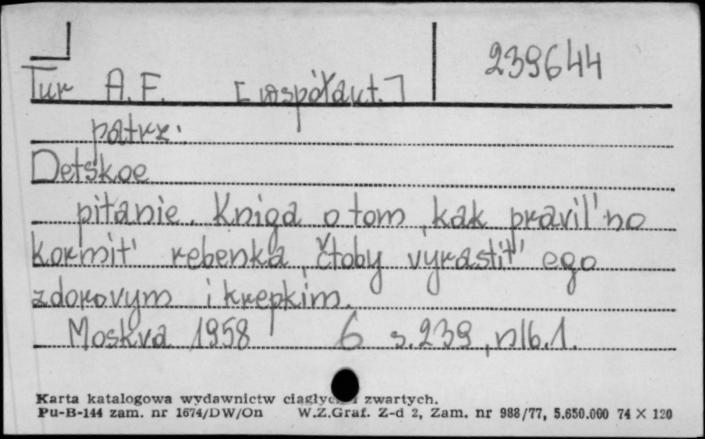 239644
Tur A.F. [współaut.]
patrz:
Detskoe
pitanie. Kniga o tom, kak pravil'no
kormit' rebenka, čtoby vyrastit' ego
zdorovym i krepkim.
Moskva 1958 6 s. 239, nlb. 1.
Karta katalogowa wydawnictw ciągłych i zwartych.
Pu-B-144 zam. nr 1674/DW/On W.Z.Graf. Z-d 2, Zam. nr 988/77, 5.650.000 74 × 120